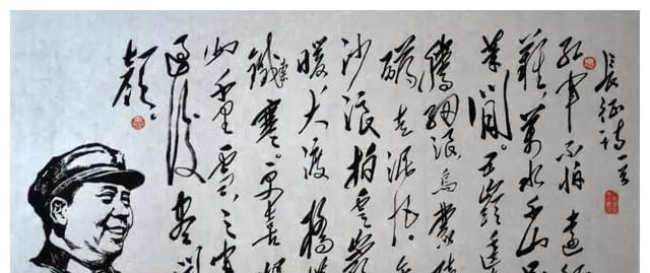 長征诗一首
红军不怕遠征
難萬水千山只
等闲。五嶺逶
騰细浪烏蒙磅
礴走泥丸。金
沙浪拍雲崖
暖大渡橋横
鐵索寒。更喜岷
山千里雪三軍
過後尽開
颜。